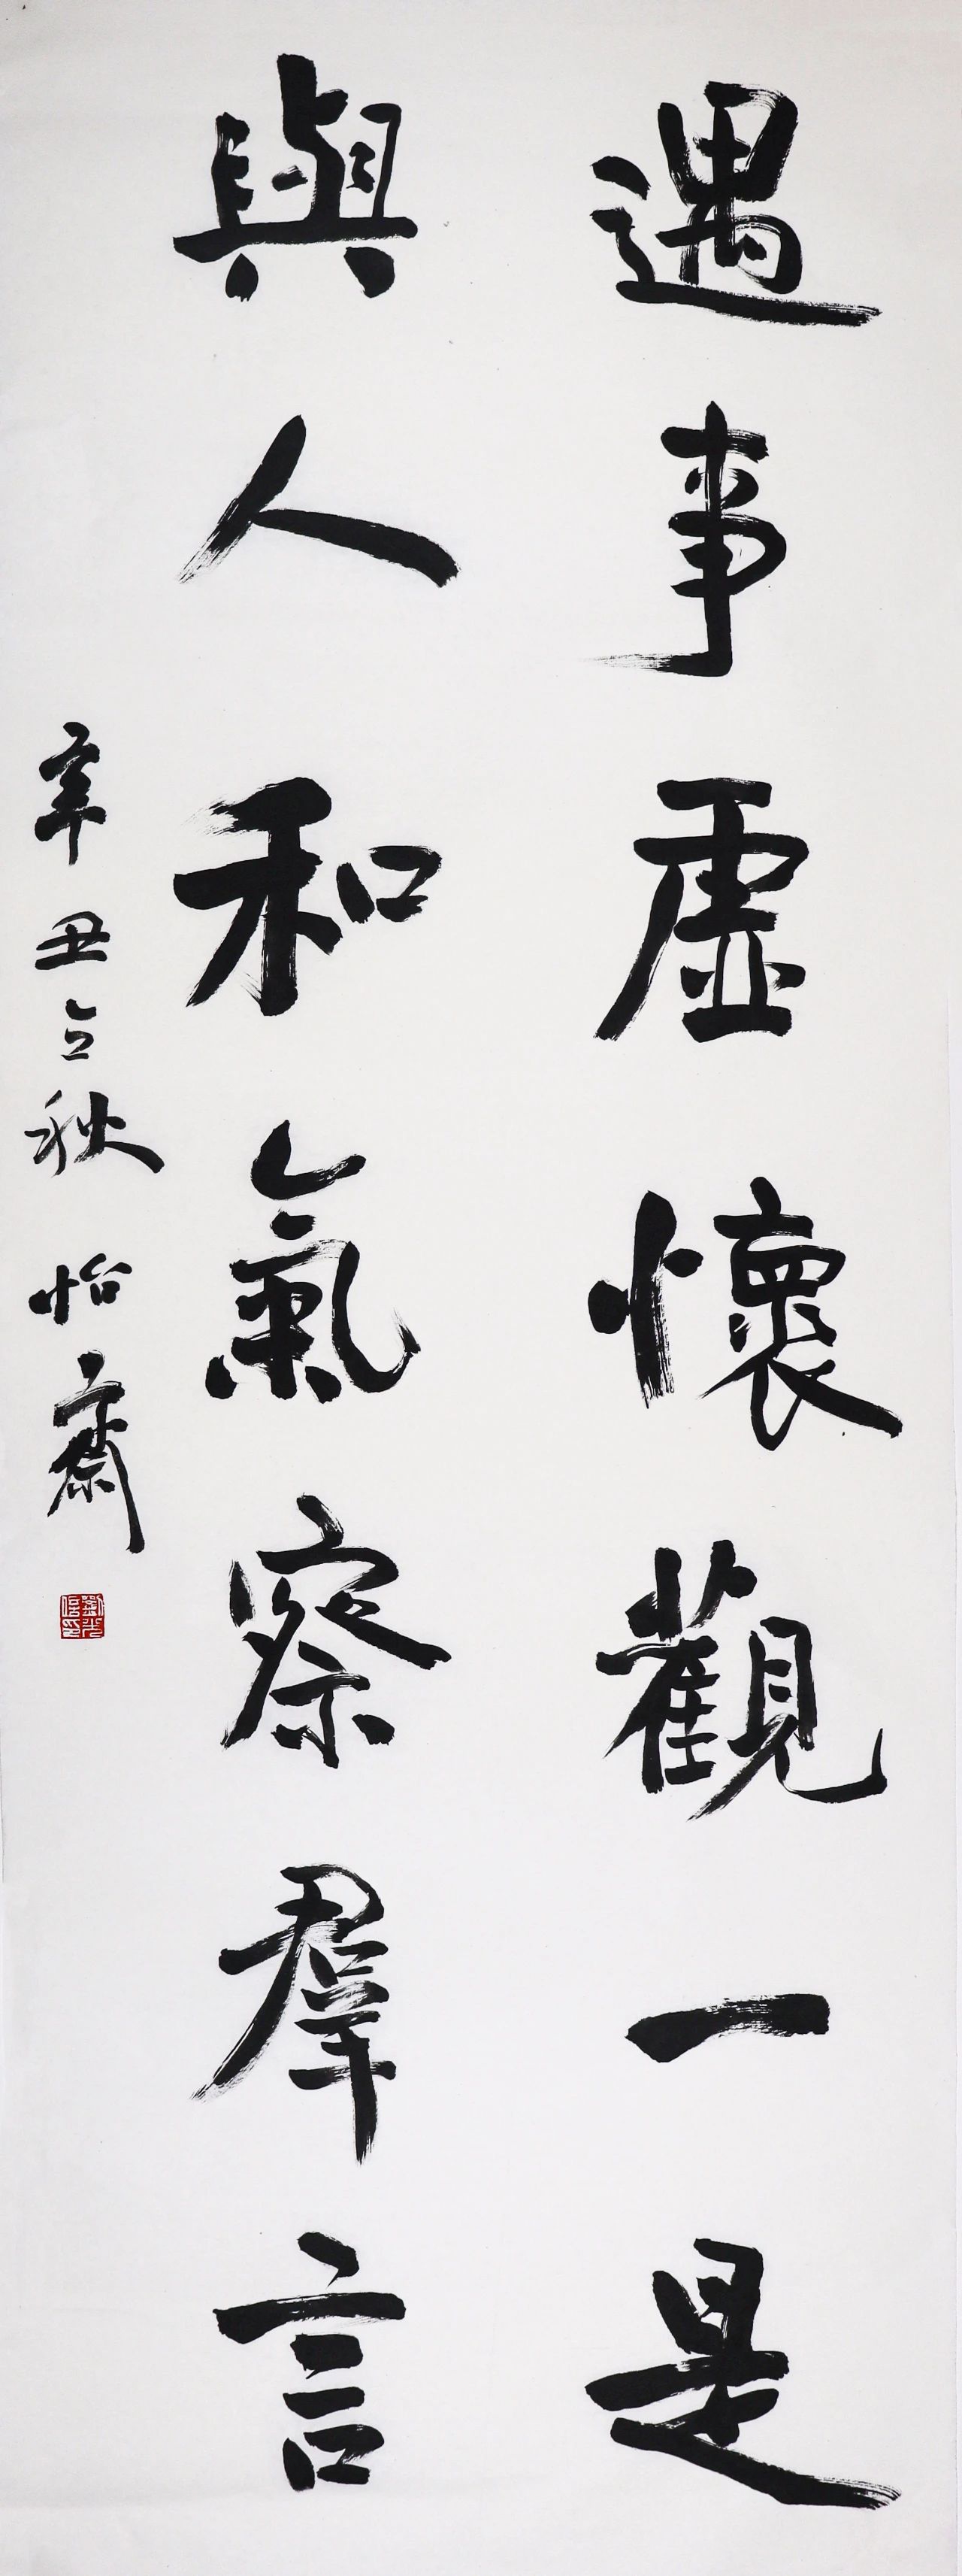 遇事虛懷觀一是
與人和氣察羣言
辛丑立秋 怡齋